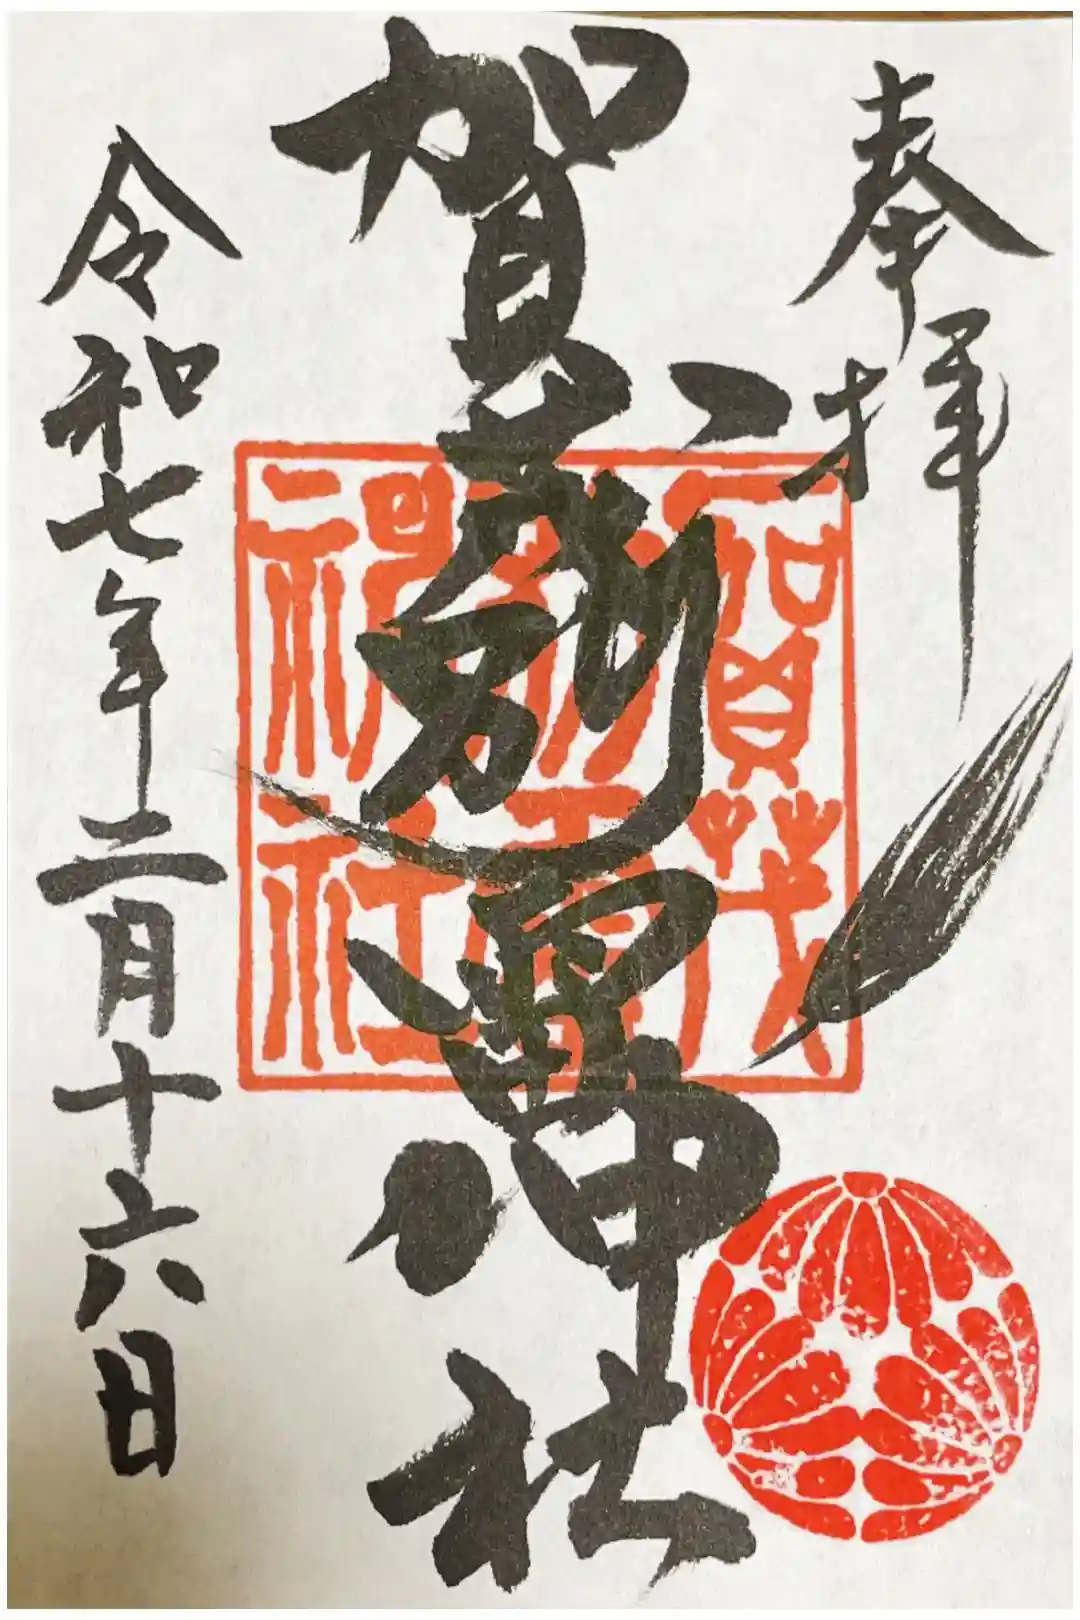 奉拝
賀茂別雷神社
令和七年二月十六日
賀茂
別雷
神社